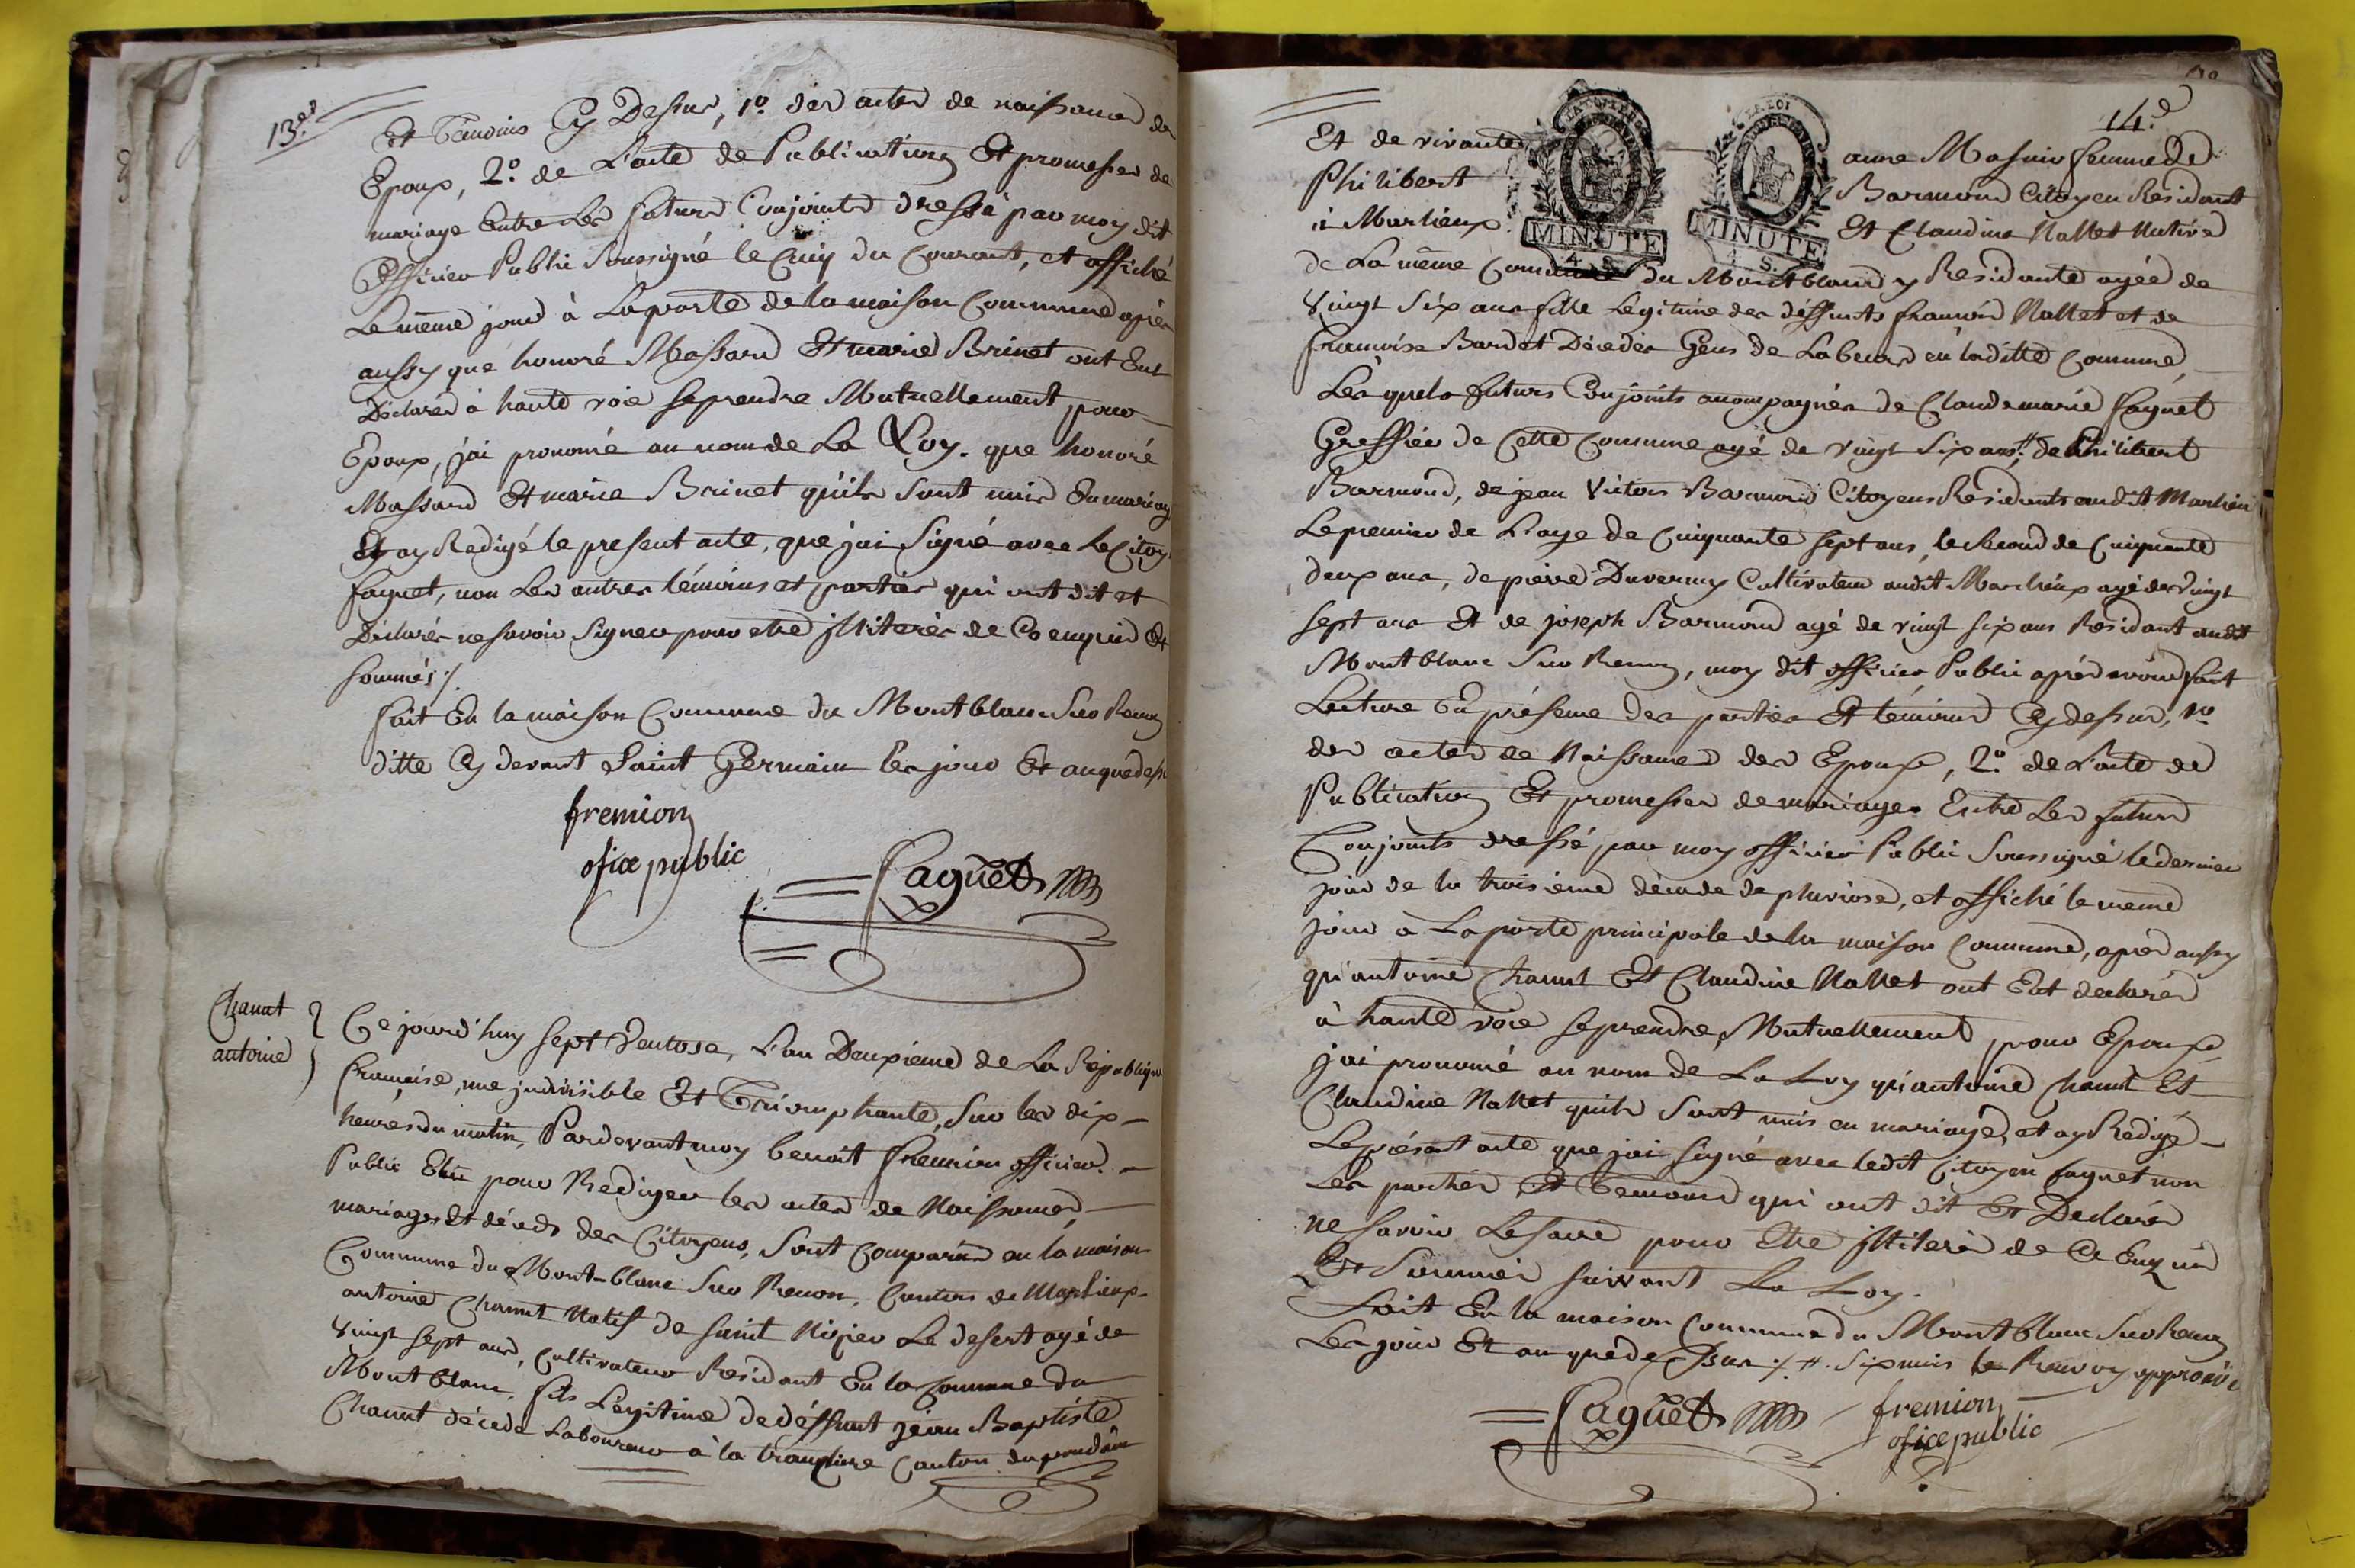 13.e
Et Temoins Cy Dessus, 1.º des actes de naissance des
Epoux, 2.º de L'acte de Publication Et promesses de
mariage Entre Les futurs Conjoints dressé par moy dit
Officier Public Soussigné le Cinq du Courant, et affiché
Le même jour à La porte de la maison Commune après
aussy que honoré Massard Et marie Brinet ont Eut
Déclarés à haute voie se prendre Mutuellement pour
Epoux, j'ai prononcé au nom de La Loy. que honoré
Massard Et marie Brinet qu'ils sont unis En mariage
Et ay Redigé le present acte, que j'ai signé avec Le Citoy.
faguet, non Les autres témoins et parties qui ont dit et
Déclarés ne savoir Signer pour etre illiterés de Ce enquis Et
sommés ./.
fait En la maison Commune du Montblanc Sur Renon
ditte Cy devant Saint Germain les jour Et an que dessus
fremion
ofice public
faguet
Chanut
antoine
Ce jourd'huy sept Ventose, L'an Deuxieme de La Republique
francaise, une indivisible Et Triomphante, Sur les dix
heures du matin, Pardevant moy benoit fremion officier
Public Elu pour Rediger les actes de Naissances,
mariages Et décés des Citoyens, Sont Comparus en la maison
Commune du Mont-blanc Sur Renon, Canton de Marlieux
antoine Chanut Natif de saint Nizier Le desert agé de
Vingt sept ans, Cultivateur Residant En la Commune du
Mont blanc, fils Legitime de déffunt jean Baptiste
Chanut décédé Laboureur à la tranclière Canton du pondain
14.e
Et de vivante anne Masnir femme de
Philibert Barmond Citoyen Residant
à Marlieux Et Claudine Nallet Native
MINUTE
MINUTE
de La même Commune du Montblanc y Residante agée de
Vingt Six ans fille Legitime des déffunts francois Nallet et de
francoise Bardet Décédés Gens de Labeurs en laditte Commune,
Les quels futurs Conjoints accompagnés de Claudemarie faguet
Greffier de Cette Commune agé de vingt Six ans, # de Philibert
Barmond, de jean Victors Barmond Citoyens Residents audit Marlieu
Le premier de L'age de Cinquante sept ans, le Second de Cinquante
deux ans, de pierre Duvernay Cultivateur audit Marlieux agé de Vingt
sept ans Et de joseph Barmond agé de vingt six ans Residant audit
Montblanc Sur Renon, moy dit officier Public après avoir fait
Lecture En présence des parties Et témoins Cy dessus, 1.º
des actes de Naissances des Epoux, 2.º de L'acte de
Publication Et promesses de mariages Entre Les futurs
Conjoints dressé par moy officier Public Soussigné le dernier
jour de la troisième décade de pluviose, et affiché le même
jour à La porte principale de la maison Commune, après aussy
qu'antoine Chanut Et Claudine Nallet ont Eut declarés
à haute voie se prendre Mutuellement pour Epoux
j'ai prononcé au nom de La Loy qu'antoine Chanut Et
Claudine Nallet quils sont unis en mariage, et ay Redigé
Le présent acte que j'ai signé avec ledit Citoyen faguet non
Les parties Et Temoins qui ont dit Et Declarés
ne savoir Le faire pour Etre illiteré de Ce Enquis
Et Sommés suivant La Loy.
Fait En la maison Commune du Montblanc Sur Renon
Les jour Et an que de Dessus ./. #. Six mois le Renvoy approuvé
faguet
fremion
ofice public